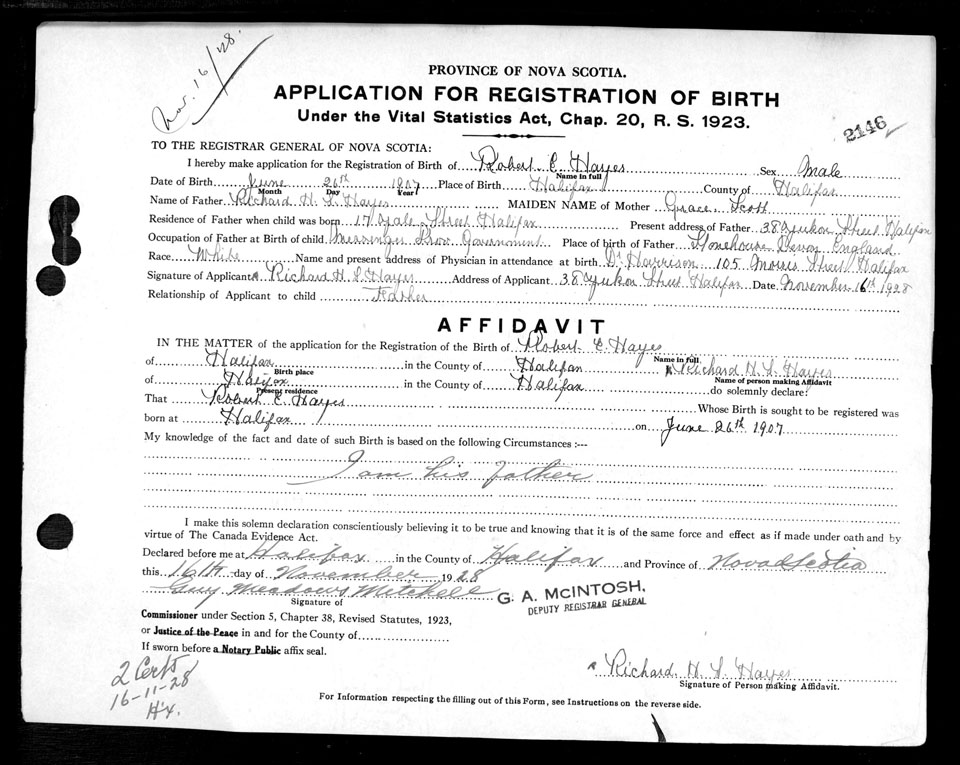 Nov. 16/28.
PROVINCE OF NOVA SCOTIA.
APPLICATION FOR REGISTRATION OF BIRTH
Under the Vital Statistics Act, Chap. 20, R. S. 1923.
2146
TO THE REGISTRAR GENERAL OF NOVA SCOTIA:
I hereby make application for the Registration of Birth of Robert E. Hayes Sex Male
Name in full
Date of Birth June 26th 1907 Place of Birth Halifax County of Halifax
Month Day Year
Name of Father Richard H. S. Hayes MAIDEN NAME of Mother Grace Scott
Residence of Father when child was born 17 Yale Street Halifax Present address of Father 38 Yukon Street Halifax
Occupation of Father at Birth of child Messenger Prov. Government Place of birth of Father Stonehouse Devon England
Race White Name and present address of Physician in attendance at birth Dr Harrison 105 Morris Street Halifax
Signature of Applicant Richard H. S. Hayes Address of Applicant 38 Yukon Street Halifax Date November 16th 1928
Relationship of Applicant to child Father
AFFIDAVIT
IN THE MATTER of the application for the Registration of the Birth of Robert E. Hayes
Name in full
of Halifax in the County of Halifax Richard H. S. Hayes
Birth place Name of person making Affidavit
of Halifax in the County of Halifax do solemnly declare:
Present residence
That Robert E. Hayes Whose Birth is sought to be registered was
born at Halifax on June 26th 1907
My knowledge of the fact and date of such Birth is based on the following Circumstances :---
I am his father
I make this solemn declaration conscientiously believing it to be true and knowing that it is of the same force and effect as if made under oath and by
virtue of The Canada Evidence Act.
Declared before me at Halifax in the County of Halifax and Province of Nova Scotia
this 16th day of November 1928
Guy Meadows Mitchell
Signature of
G. A. McINTOSH,
DEPUTY REGISTRAR GENERAL
Commissioner under Section 5, Chapter 38, Revised Statutes, 1923,
or Justice of the Peace in and for the County of
If sworn before a Notary Public affix seal.
2 Certs
16-11-28
Hx.
Richard H. S. Hayes
Signature of Person making Affidavit.
For Information respecting the filling out of this Form, see Instructions on the reverse side.